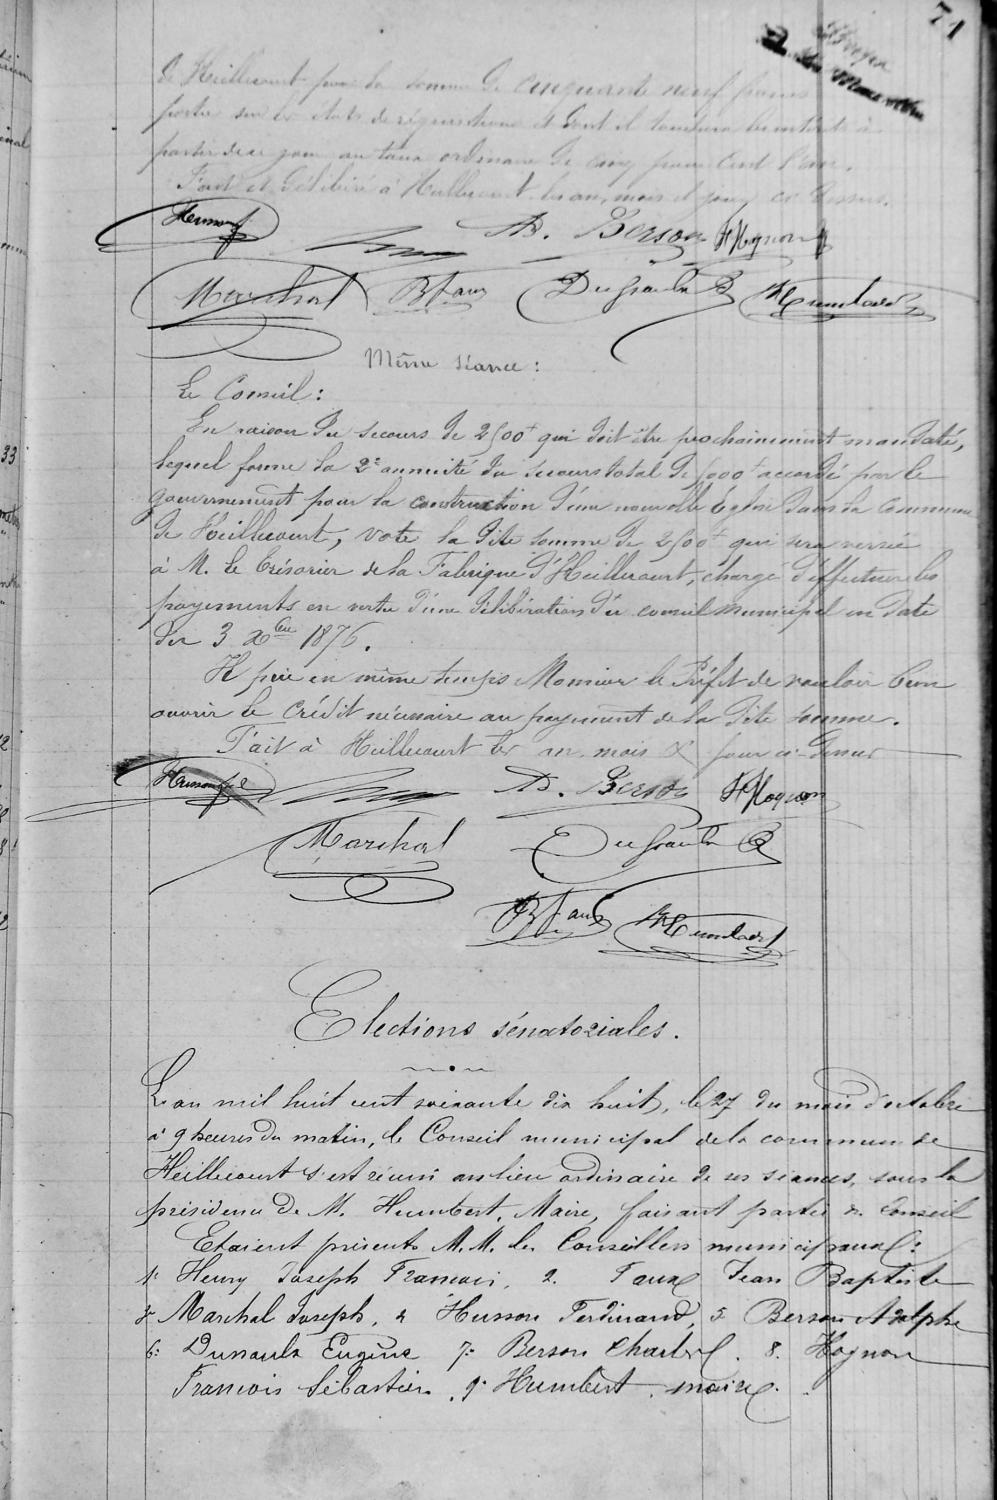 71
de Heillecourt pour la somme de cinquante neuf francs
portée sur les états de réquisitions et dont il touchera les intérêts à
partir de ce jour au taux ordinaire de cinq pour cent l'an.
Fait et délibéré à Heillecourt les an, mois et jour ci dessus.
Husson f AD. Berson F Hognon
Marchal Bt Taux Dusaulx E Humbert
Même séance :
Le Conseil :
En raison du secours de 2500f qui doit être prochainement mandaté,
lequel forme la 2e annuité du secours total de 5000f accordé par le
gouvernement pour la construction d'une nouvelle Église dans la commune
de Heillecourt, vote la dite somme de 2500f qui sera versée
à M. le Trésorier de la Fabrique d'Heillecourt, chargé d'effectuer les
payements en vertu d'une délibération du conseil municipal en date
du 3 Xbre 1876.
Il prie en même temps Monsieur le Préfet de vouloir bien
ouvrir le crédit nécessaire au payement de la dite somme.
Fait à Heillecourt les an, mois & jour ci-dessus
Husson f AD. Berson F Hognon
Marchal Dusaulx E
Bt Taux Humbert
Elections sénatoriales.
L'an mil huit cent soixante dix huit, le 27 du mois d'octobre
à 9 heures du matin, le Conseil municipal de la commune de
Heillecourt s'est réuni au lieu ordinaire de ses séances, sous la
présidence de M. Humbert, Maire, faisant partie du Conseil
Etaient présents M.M. les Conseillers municipaux :
1° Henry Joseph François, 2. Taux Jean Baptiste
3° Marchal Joseph, 4 Husson Ferdinand, 5 Berson Adolphe
6: Dusaulx Eugène 7: Berson Charles. 8. Hognon
François Sébastien, 9° Humbert, maire.